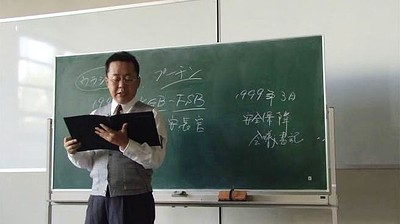 ウラジ プーチン
199 GB-FSB
長官
1999年3月
安全保障
会議書記